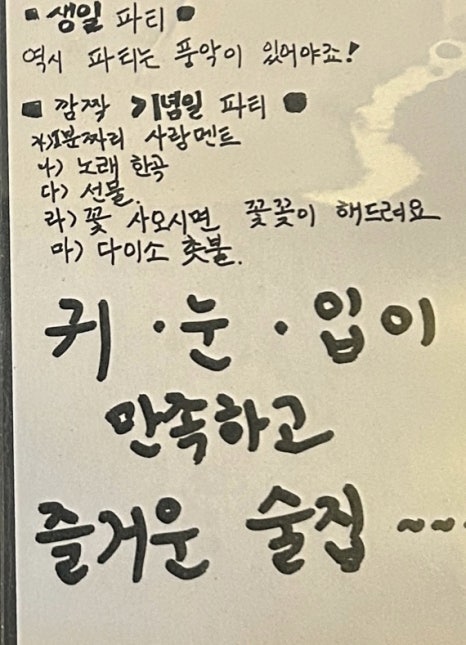 ■ 생일 파티 ●
역시 파티는 풍악이 있어야죠!
■ 깜짝 기념일 파티 ●
가)1분짜리 사랑멘트
나) 노래 한곡
다) 선물.
라) 꽃 사오시면 꽃꽂이 해드려요
마) 다이소 촛불.
귀·눈·입이
만족하고
즐거운 술집 ~~~